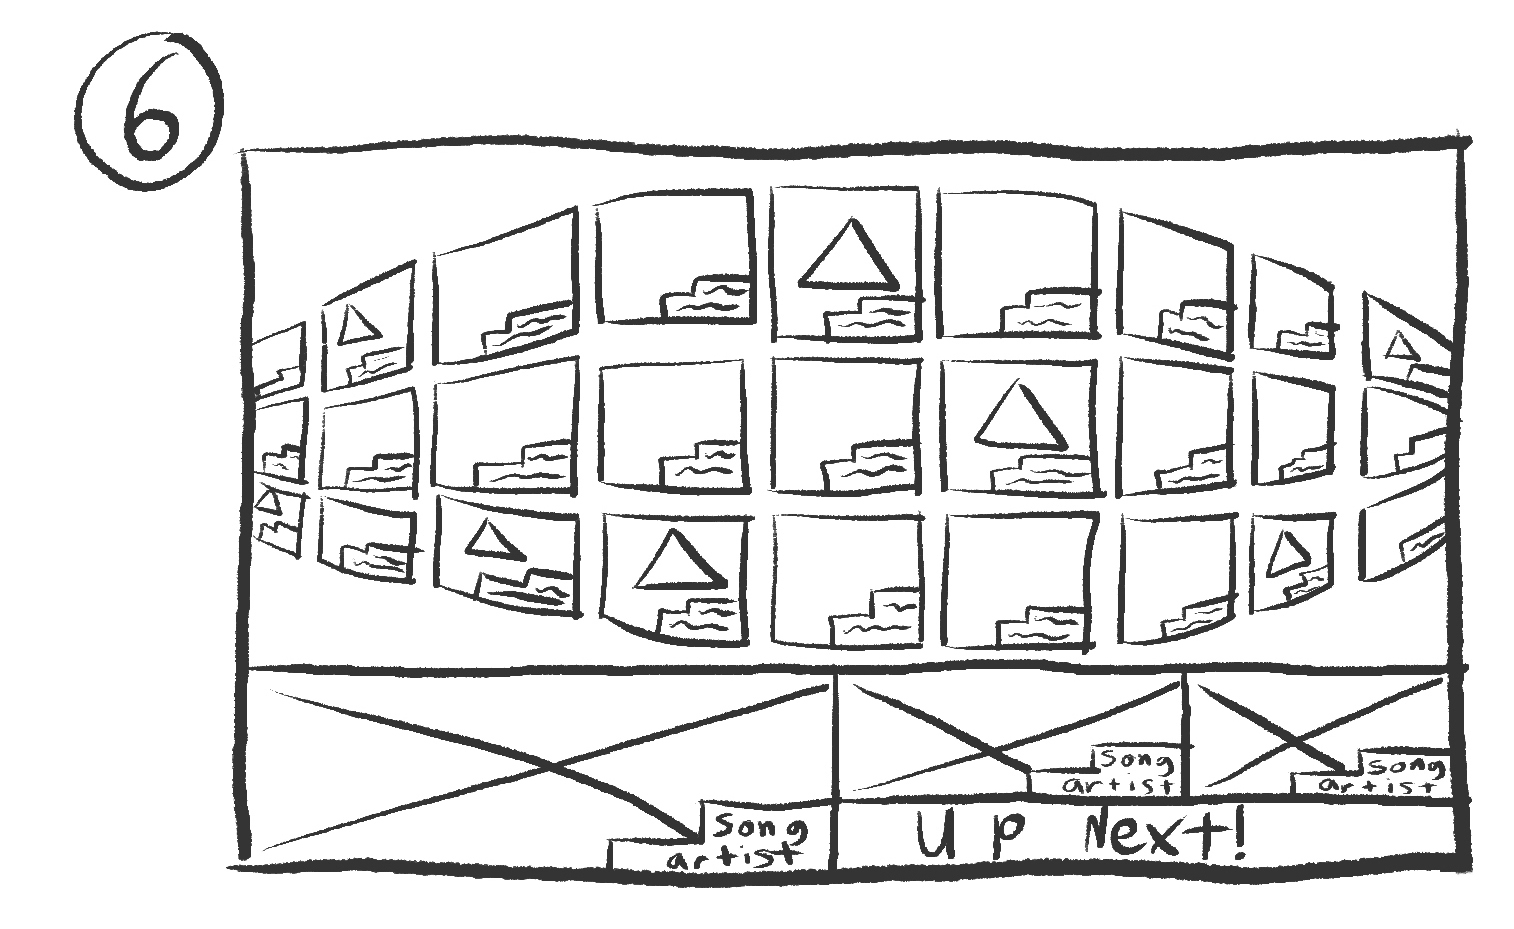 6
Song
artist
Song
artist
Song
artist
Up Next!